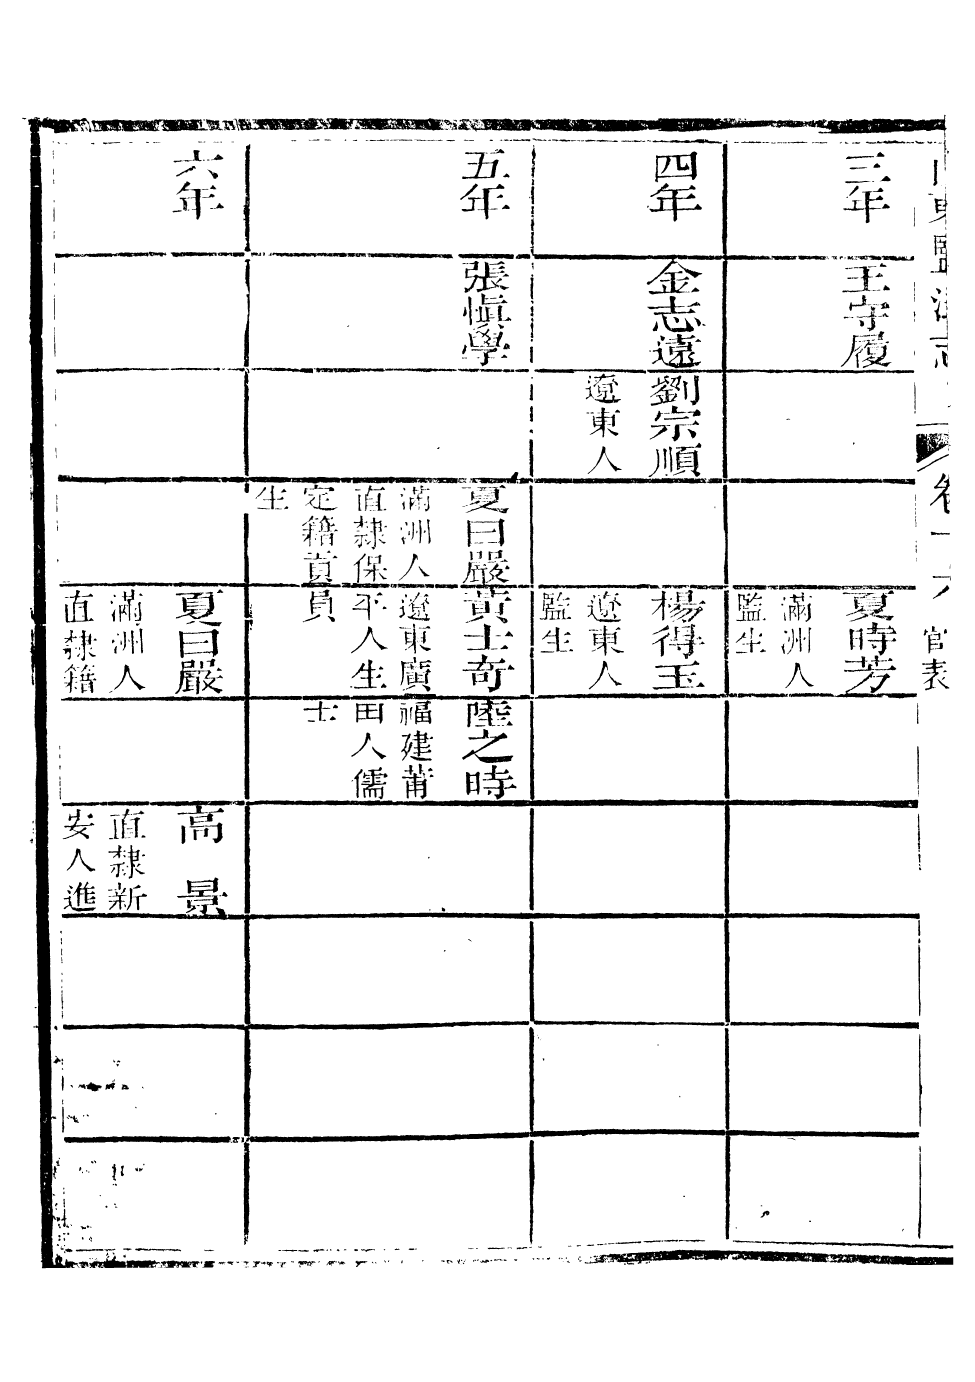 東鹽法志
卷十六
官表
三年
王守履
夏時芳
滿洲人
監生
四年
金志遠
劉宗順
遼東人
楊得玉
遼東人
監生
五年
張愼學
夏曰嚴
滿洲人
直隸保
定籍貢
生
黃士奇
遼東廣
平人生
員
陸之時
福建莆
田人儒
士
六年
夏曰嚴
滿洲人
直隸籍
高景
直隸新
安人進